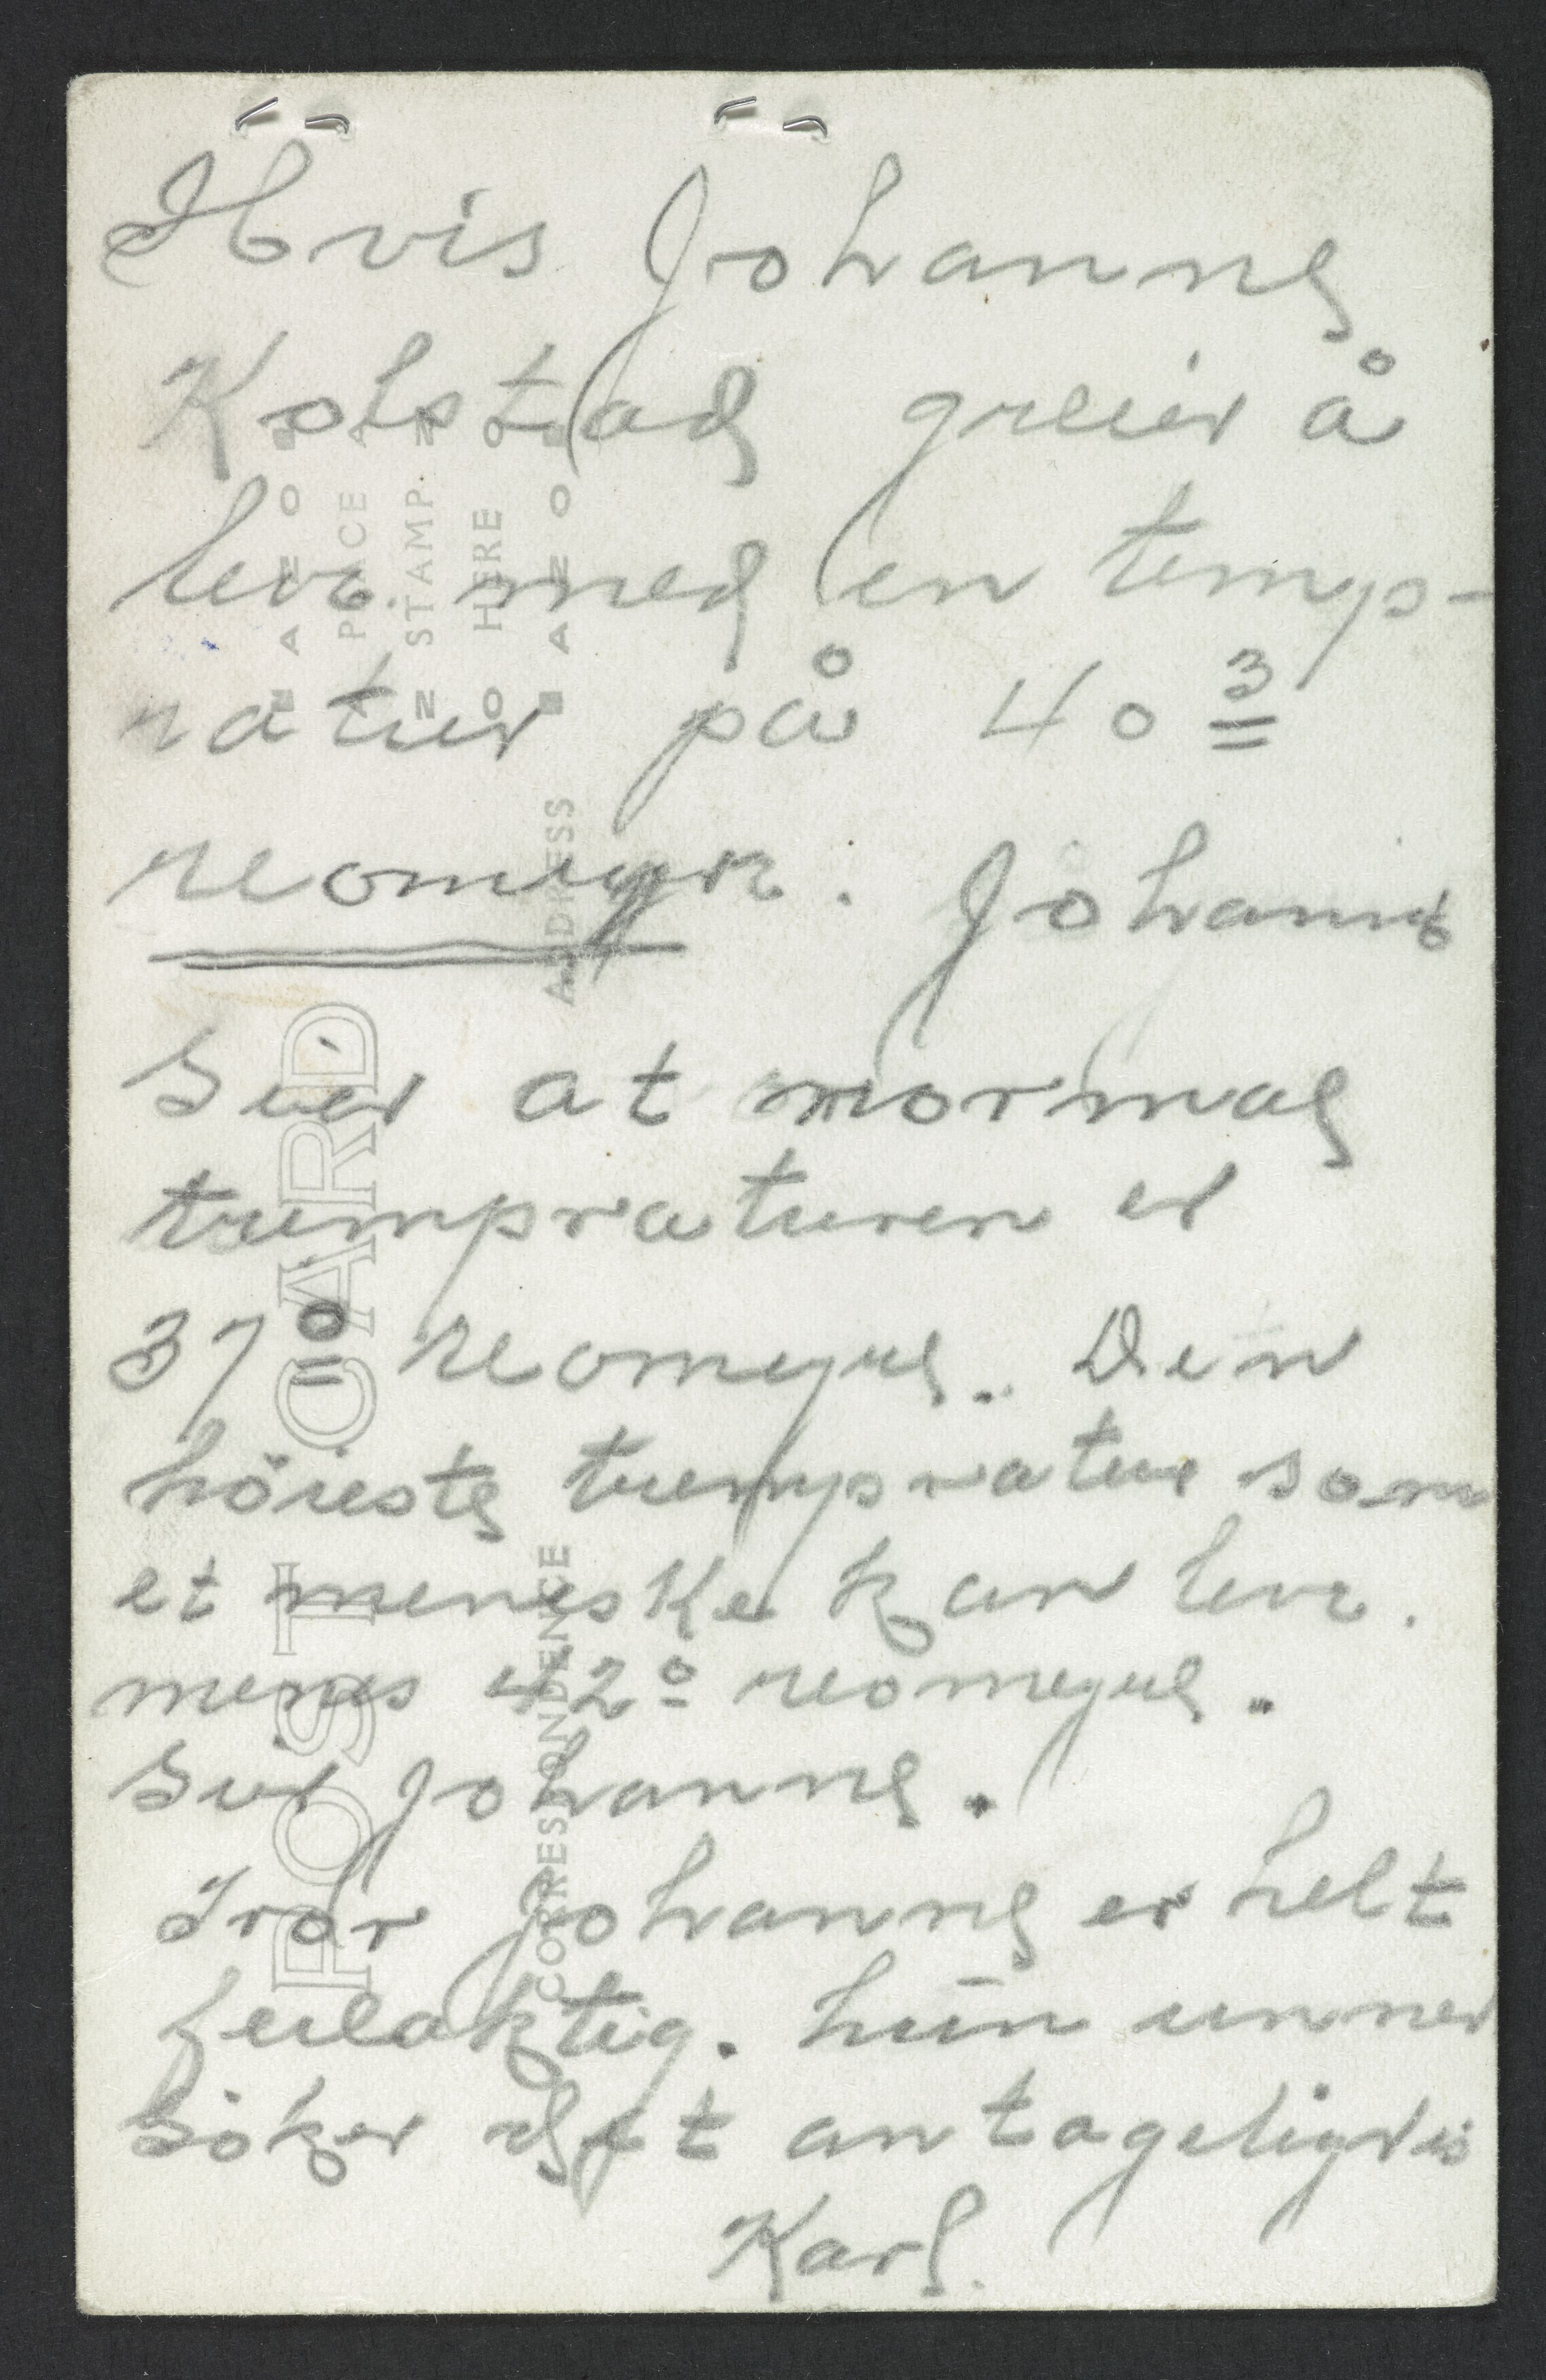 Hvis Johanne
Kolstad greier å
leve med en temp-
ratur på 40 3
reomyr. Johanne
Sier at normal
trempraturen er
37° reomyre. Den
höieste trempratur som
et meneske kan leve.
menes 42° reomyre.
Sier Johanne.
Tror Johanne er helt
feilaktig. hun unner
söker det antageligvis
Karl.
PLACE
STAMP
HERE
ADDRESS
POST CARD
CORRESPONDENCE